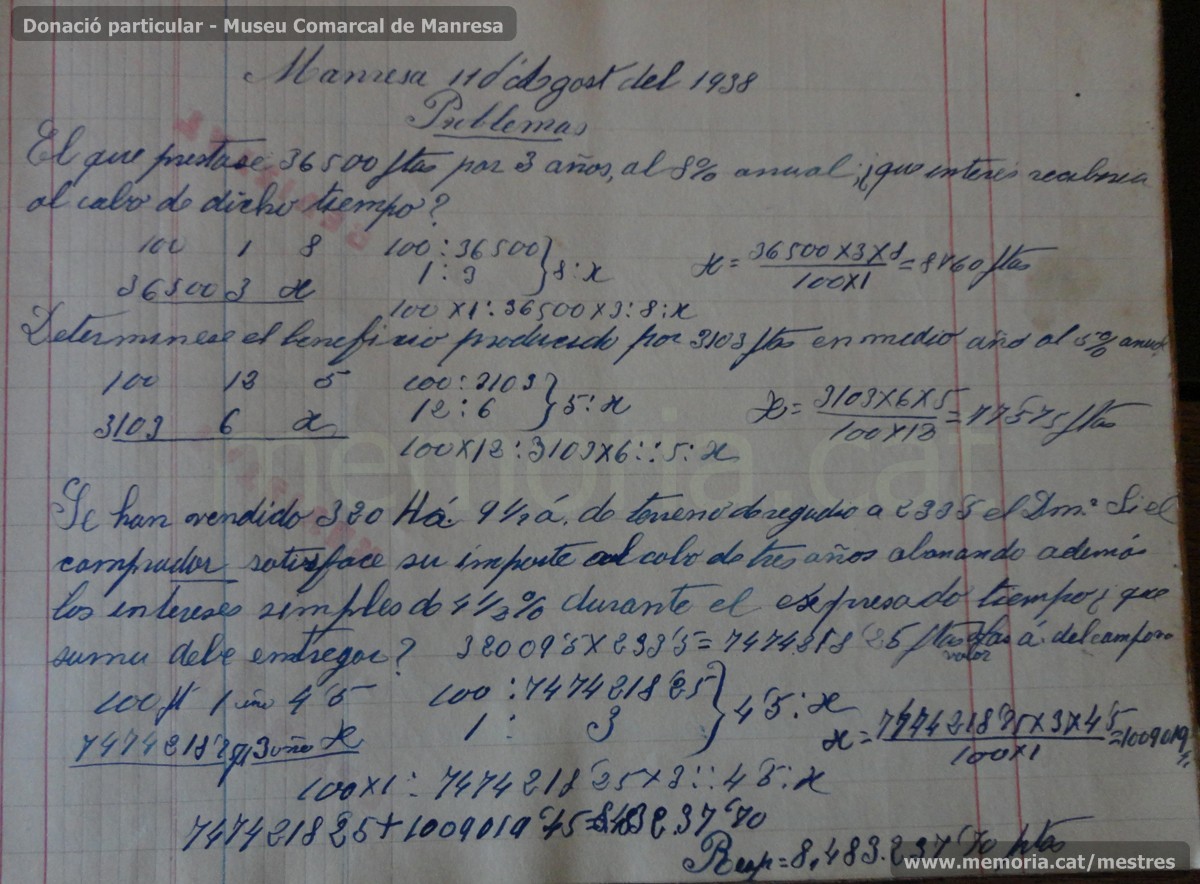 Donació particular - Museu Comarcal de Manresa
Manresa 11 d'Agost del 1938
Problemas
El que prestase 36500 ptas por 3 años, al 8% anual; ¿que interés recibirá
al cabo de dicho tiempo?
100 1 8 100 : 36500
1 : 3 } 8 : x x = 36500 x 3 x 8 / 100 x 1 = 8760 ptas
36500 3 x
100 x 1 : 36500 x 3 : 8 : x
Determinese el beneficio producido por 3103 ptas en medio año al 5% anual
100 12 5 100 : 3103
12 : 6 } 5 : x x = 3103 x 6 x 5 / 100 x 12 = 77575 ptas
3103 6 x
100 x 12 : 3103 x 6 :: 5 : x
memoria.cat
Se han vendido 320 Há 9 1/2 á. de terreno de regadio a 233'5 el Dm.² Si el
comprador satisface su importe al cabo de tres años abonando además
los intereses simples de 4 1/2 % durante el expresado tiempo ¿que
suma debe entregar? 32009'5 x 233'5 = 7474218'25 ptas á del campo
valor
100 pt 1 año 4'5 100 : 7474218'25
1 : 3 } 4'5 : x x = 7474218'25 x 3 x 4'5 / 100 x 1 = 1009019
7474218'25 3 año x
100 x 1 : 7474218'25 x 3 :: 4'5 : x
7474218'25 + 1009019'45 = 8483237'70
Resp = 8,483.237'70 ptas
www.memoria.cat/mestres